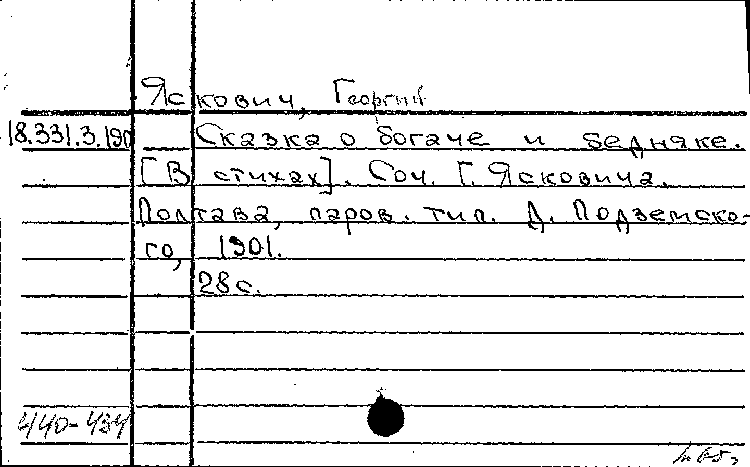 Яскович, Георгий
18.331.3.190 Сказка о богаче и бедняке.
[В стихах]. Соч. Г. Ясковича.
Полтава, паров. тип. Д. Подземско-
го, 1901.
28 с.
440-434